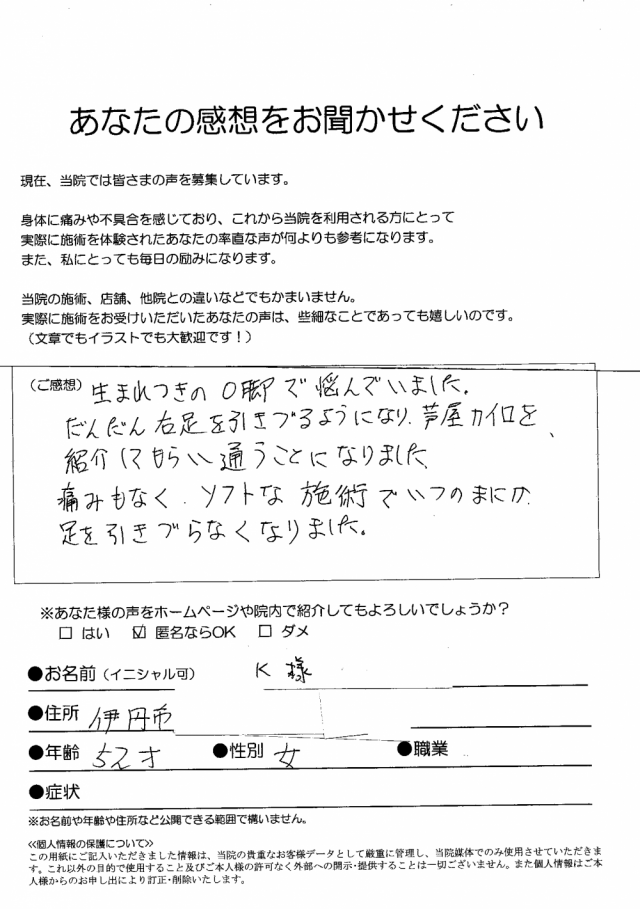 あなたの感想をお聞かせください
現在、当院では皆さまの声を募集しています。
身体に痛みや不具合を感じており、これから当院を利用される方にとって
実際に施術を体験されたあなたの率直な声が何よりも参考になります。
また、私にとっても毎日の励みになります。
当院の施術、店舗、他院との違いなどでもかまいません。
実際に施術をお受けいただいたあなたの声は、些細なことであっても嬉しいのです。
（文章でもイラストでも大歓迎です！）
（ご感想）生まれつきのO脚で悩んでいました。
だんだん右足を引きづるようになり、芦屋カイロを、
紹介してもらい通うことになりました、
痛みもなく、ソフトな施術でいつのまにか、
足を引きづらなくなりました。
※あなた様の声をホームページや院内で紹介してもよろしいでしょうか？
□ はい ☑ 匿名ならOK □ ダメ
●お名前（イニシャル可） K 様
●住所 伊丹市
●年齢 52才 ●性別 女 ●職業
●症状
※お名前や年齢や住所など公開できる範囲で構いません。
≪個人情報の保護について≫
この用紙にご記入いただきました情報は、当院の貴重なお客様データとして厳重に管理し、当院媒体でのみ使用させていただきま
す。これ以外の目的で使用すること及びご本人様の許可なく外部への開示・提供することは一切ございません。また個人情報はご本
人様からのお申し出により訂正・削除いたします。